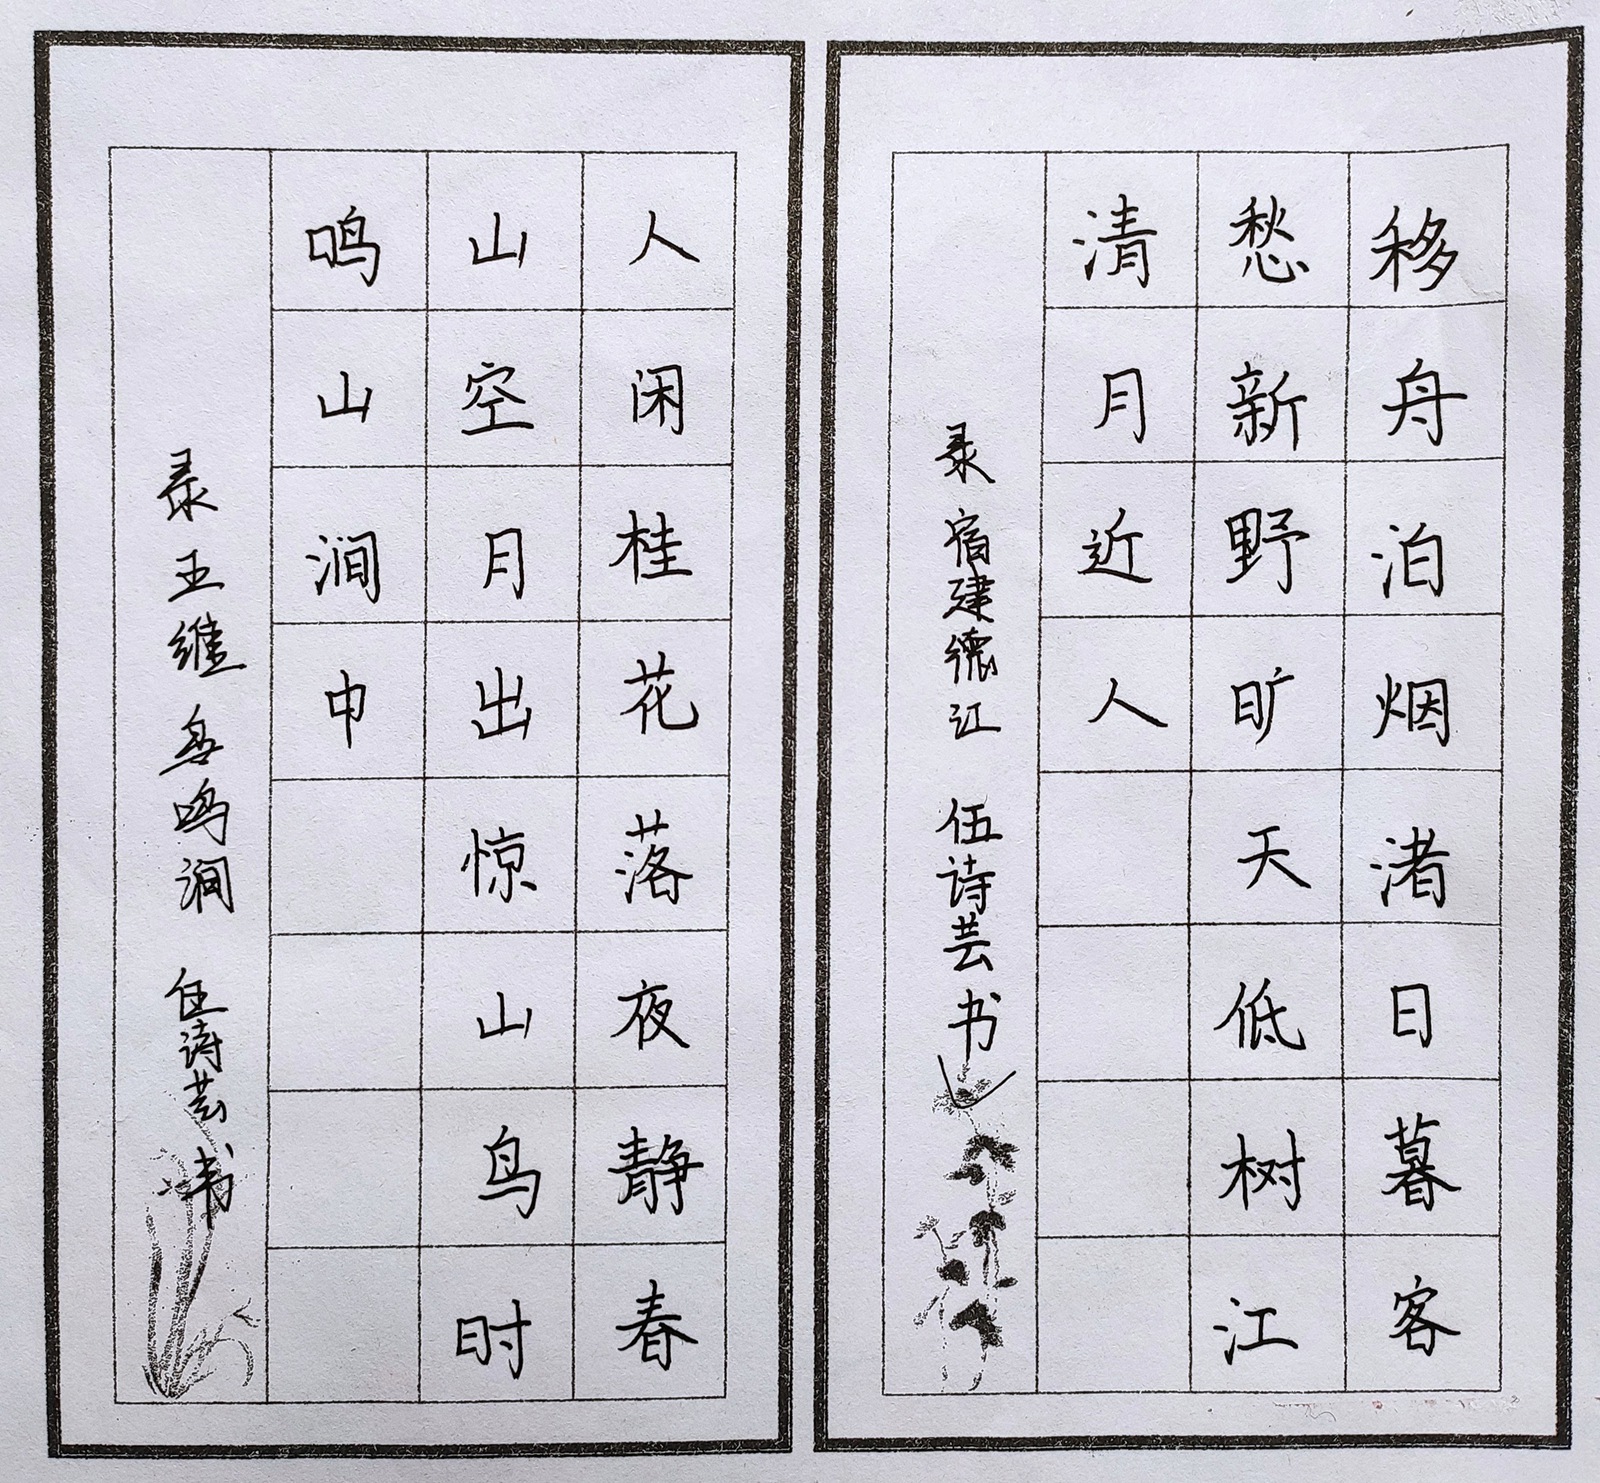 移舟泊烟渚日暮客
愁新野旷天低树江
清月近人
录宿建德江 伍诗芸书
人闲桂花落夜静春
山空月出惊山鸟时
鸣山涧中
录王维鸟鸣涧 伍诗芸书